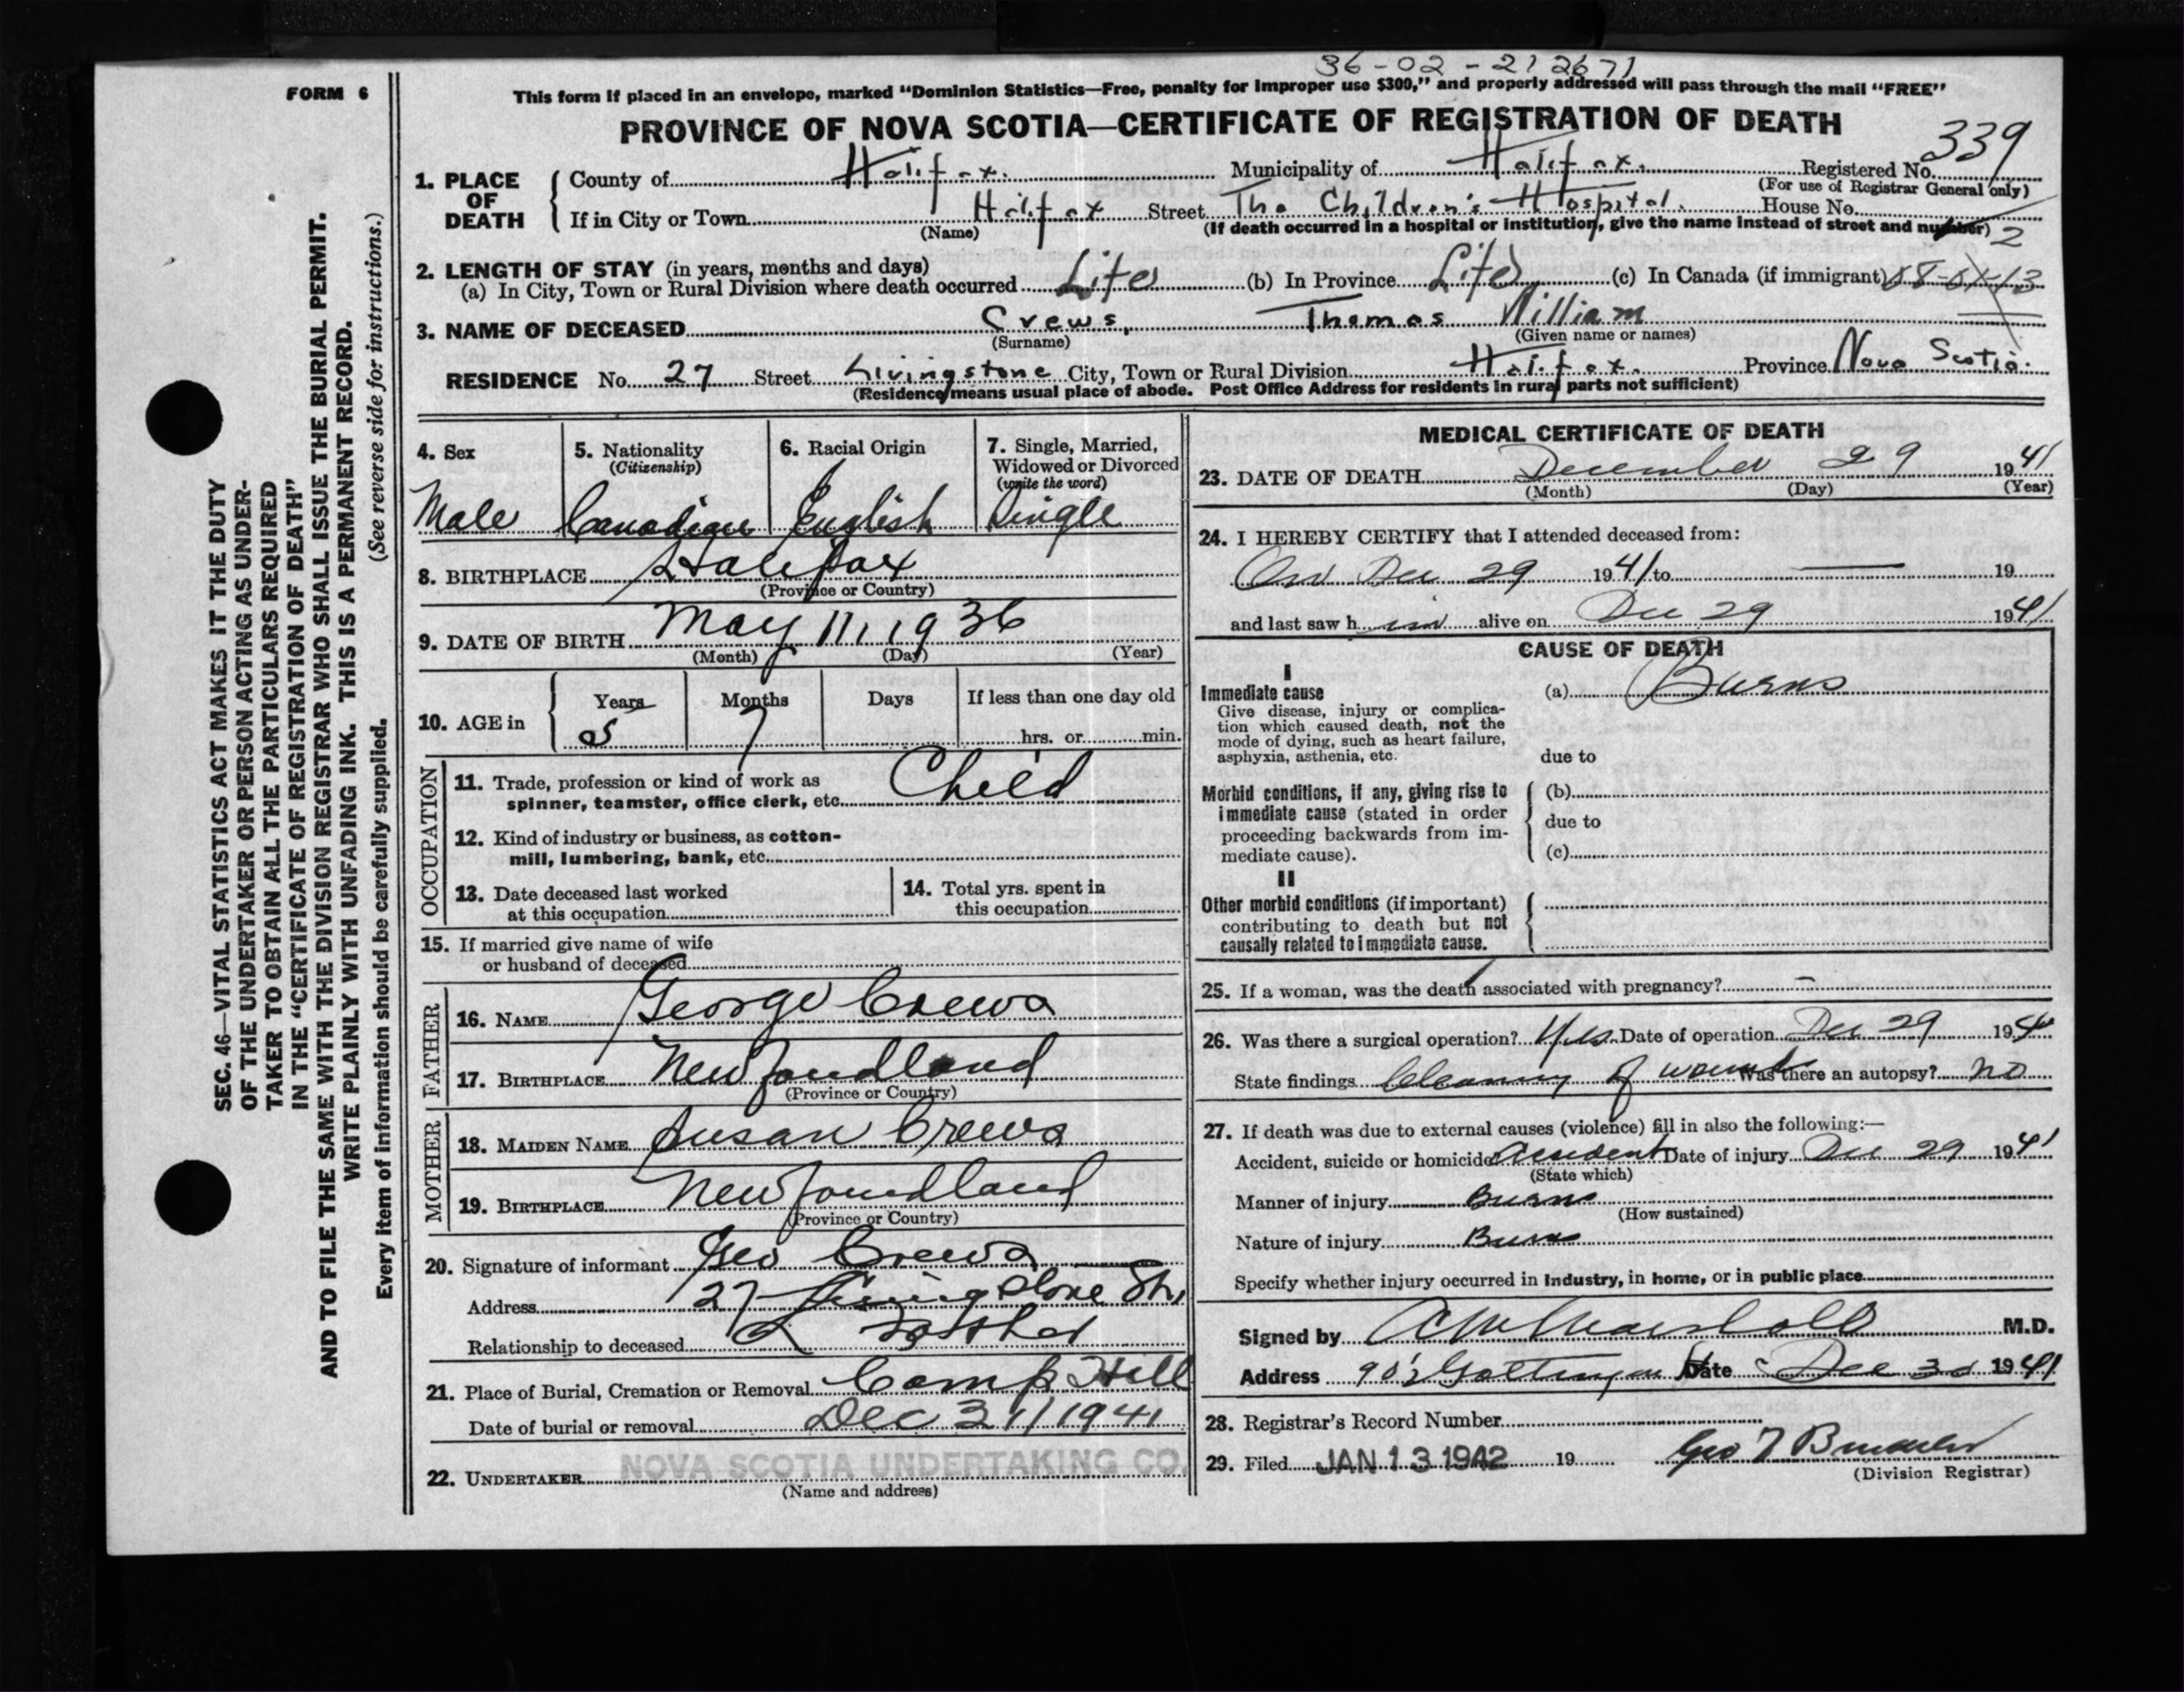 36-02-212671
FORM 6
This form if placed in an envelope, marked "Dominion Statistics—Free, penalty for improper use $300," and properly addressed will pass through the mail "FREE"
PROVINCE OF NOVA SCOTIA—CERTIFICATE OF REGISTRATION OF DEATH
339
1. PLACE OF DEATH
County of Halifax. Municipality of Halifax. Registered No.
(For use of Registrar General only)
If in City or Town Halifax Street The Children's Hospital. House No.
(Name) (If death occurred in a hospital or institution, give the name instead of street and number)
2
2. LENGTH OF STAY (in years, months and days)
(a) In City, Town or Rural Division where death occurred Life (b) In Province Life (c) In Canada (if immigrant)
3. NAME OF DECEASED Crews, Thomas William
(Surname) (Given name or names)
RESIDENCE No. 27 Street Livingstone City, Town or Rural Division Halifax. Province Nova Scotia.
(Residence means usual place of abode. Post Office Address for residents in rural parts not sufficient)
SEC. 46—VITAL STATISTICS ACT MAKES IT THE DUTY
OF THE UNDERTAKER OR PERSON ACTING AS UNDER-
TAKER TO OBTAIN ALL THE PARTICULARS REQUIRED
IN THE "CERTIFICATE OF REGISTRATION OF DEATH"
AND TO FILE THE SAME WITH THE DIVISION REGISTRAR WHO SHALL ISSUE THE BURIAL PERMIT.
WRITE PLAINLY WITH UNFADING INK. THIS IS A PERMANENT RECORD.
(See reverse side for instructions.)
Every item of information should be carefully supplied.
4. Sex
Male
5. Nationality
(Citizenship)
Canadian
6. Racial Origin
English
7. Single, Married,
Widowed or Divorced
(write the word)
Single
8. BIRTHPLACE Halifax
(Province or Country)
9. DATE OF BIRTH May 11, 1936
(Month) (Day) (Year)
10. AGE in
Years Months Days If less than one day old
5 7 hrs. or min.
OCCUPATION
11. Trade, profession or kind of work as
spinner, teamster, office clerk, etc. Child
12. Kind of industry or business, as cotton-
mill, lumbering, bank, etc.
13. Date deceased last worked
at this occupation
14. Total yrs. spent in
this occupation
15. If married give name of wife
or husband of deceased
FATHER
16. NAME George Crews
17. BIRTHPLACE Newfoundland
(Province or Country)
MOTHER
18. MAIDEN NAME Susan Crews
19. BIRTHPLACE Newfoundland
(Province or Country)
20. Signature of informant Geo Crews
Address 27 Livingstone St.,
Relationship to deceased Father
21. Place of Burial, Cremation or Removal Camp Hill
Date of burial or removal Dec 31/1941
22. UNDERTAKER NOVA SCOTIA UNDERTAKING CO.
(Name and address)
MEDICAL CERTIFICATE OF DEATH
23. DATE OF DEATH December 29 1941
(Month) (Day) (Year)
24. I HEREBY CERTIFY that I attended deceased from:
On Dec 29 1941 to — 19
and last saw him alive on Dec 29 1941
CAUSE OF DEATH
I
Immediate cause (a) Burns
Give disease, injury or complica-
tion which caused death, not the
mode of dying, such as heart failure,
asphyxia, asthenia, etc. due to
Morbid conditions, if any, giving rise to (b)
immediate cause (stated in order due to
proceeding backwards from im-
mediate cause). (c)
II
Other morbid conditions (if important)
contributing to death but not
causally related to immediate cause.
25. If a woman, was the death associated with pregnancy? –
26. Was there a surgical operation? Yes. Date of operation Dec 29 1941
State findings Cleaning of wounds Was there an autopsy? no
27. If death was due to external causes (violence) fill in also the following:—
Accident, suicide or homicide Accident Date of injury Dec 29 1941
(State which)
Manner of injury Burns
(How sustained)
Nature of injury Burns
Specify whether injury occurred in Industry, in home, or in public place
Signed by M.D.
Address Date Dec 30 1941
28. Registrar's Record Number
29. Filed JAN 13 1942 19
Geo
(Division Registrar)